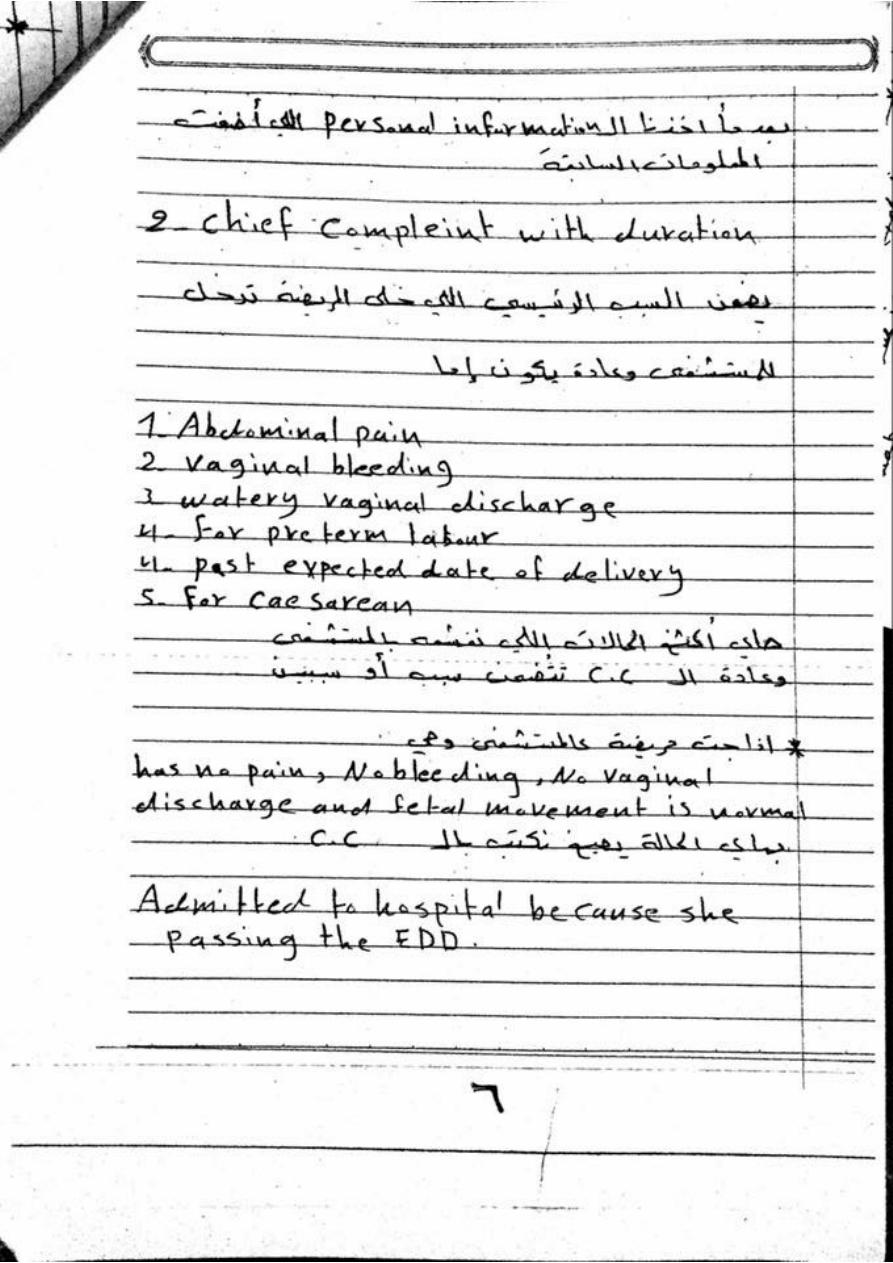 بعد ما اخذنا الـ personal information اللي أضفت
المعلومات السابقة
2- chief compleint with duration
يضمن السبب الرئيسي اللي خلى المريضة تدخل
للمستشفى وعادة يكون إما
1. Abdominal pain
2. vaginal bleeding
3 watery vaginal discharge
4- for preterm labour
4- past expected date of delivery
5- for caesarean
هاي أكثر الحالات اللي بالمستشفى
وعادة الـ C.C تتضمن سبب أو سببين
* اذا اجت مريضة عالمستشفى وهي
has no pain, No bleeding, No vaginal
discharge and fetal movement is normal
بهاي الحالة يصبح نكتب بالـ C.C :
Admitted to hospital because she
passing the EDD.
٦